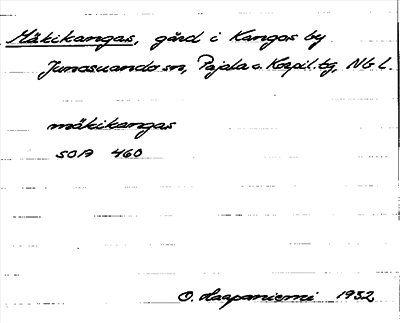 Mäkikangas, gård i Kangos by
Junosuando sn, Pajala o. Korpil. tg, NG L.
mäkikangas
SOA 460
O. Haapaniemi 1952